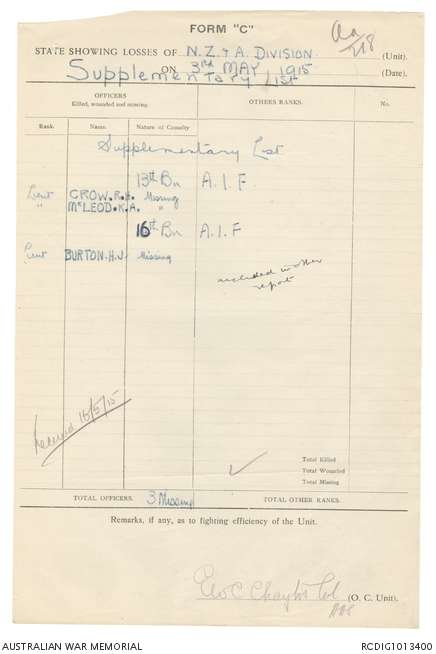 FORM "C"
Aa/218
STATE SHOWING LOSSES OF N.Z. & A. DIVISION (Unit).
ON 3rd MAY 1915 (Date).
Supplementary List
OFFICERS
Killed, wounded and missing.
OTHERS RANKS.
No.
Rank. Name. Nature of Casualty
Supplementary List
13th Bn A.I.F.
Lieut CROW.R.H. Missing
" McLEOD.K.A. "
16th Bn A.I.F
Lieut BURTON.H.J. Missing
included in other
report
Received 16/5/15
Total Killed
Total Wounded
Total Missing
TOTAL OFFICERS 3 Missing TOTAL OTHER RANKS.
Remarks, if any, as to fighting efficiency of the Unit.
EWC Chaytor Col (O. C. Unit).
AUSTRALIAN WAR MEMORIAL
RCDIG1013400